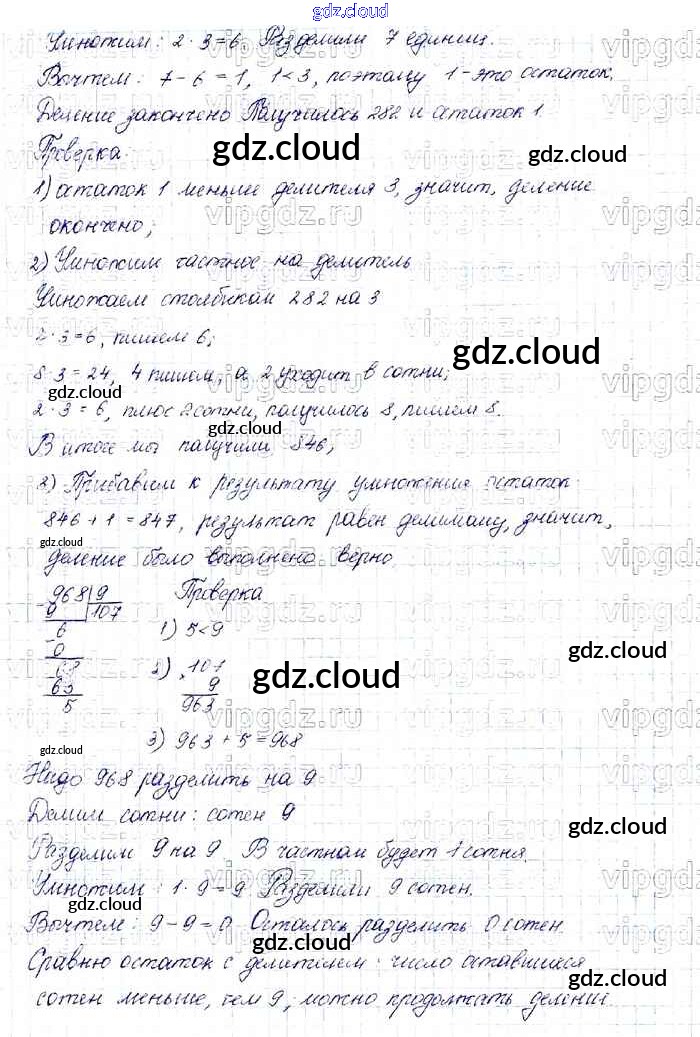 gdz.cloud
Умножим: 2·3=6. Разделили 7 единиц.
Вычтем: 7-6=1, 1<3, поэтому 1-это остаток.
Деление закончено Получилось 282 и остаток 1.
Проверка:
gdz.cloud gdz.cloud
1) остаток 1 меньше делителя 3, значит, деление
окончено;
2) Умножим частное на делитель
Умножаем столбиком 282 на 3
2·3=6, пишем 6;
gdz.cloud
8·3=24, 4 пишем, а 2 уходит в сотни;
gdz.cloud
2·3=6, плюс 2 сотни, получилось 8, пишем 8.
gdz.cloud
В итоге мы получили 846;
2) Прибавим к результату умножения остаток:
846+1=847, результат равен делимому, значит,
gdz.cloud
деление было выполнено верно.
968 9 Проверка
9 107
6 1) 5<9
0
gdz.cloud
68 2) 107
gdz.cloud
63 9
5 963
3) 963+5=968
gdz.cloud
Надо 968 разделить на 9
Делим сотни: сотен 9
gdz.cloud
Разделим 9 на 9. В частном будет 1 сотня.
gdz.cloud
Умножим: 1·9=9 Разделили 9 сотен.
Вычтем: 9-9=0. Осталось разделить 0 сотен.
gdz.cloud
Сравню остаток с делителем: число оставшихся
gdz.cloud
сотен меньше, чем 9, можно продолжать деление
vipgdz.ru